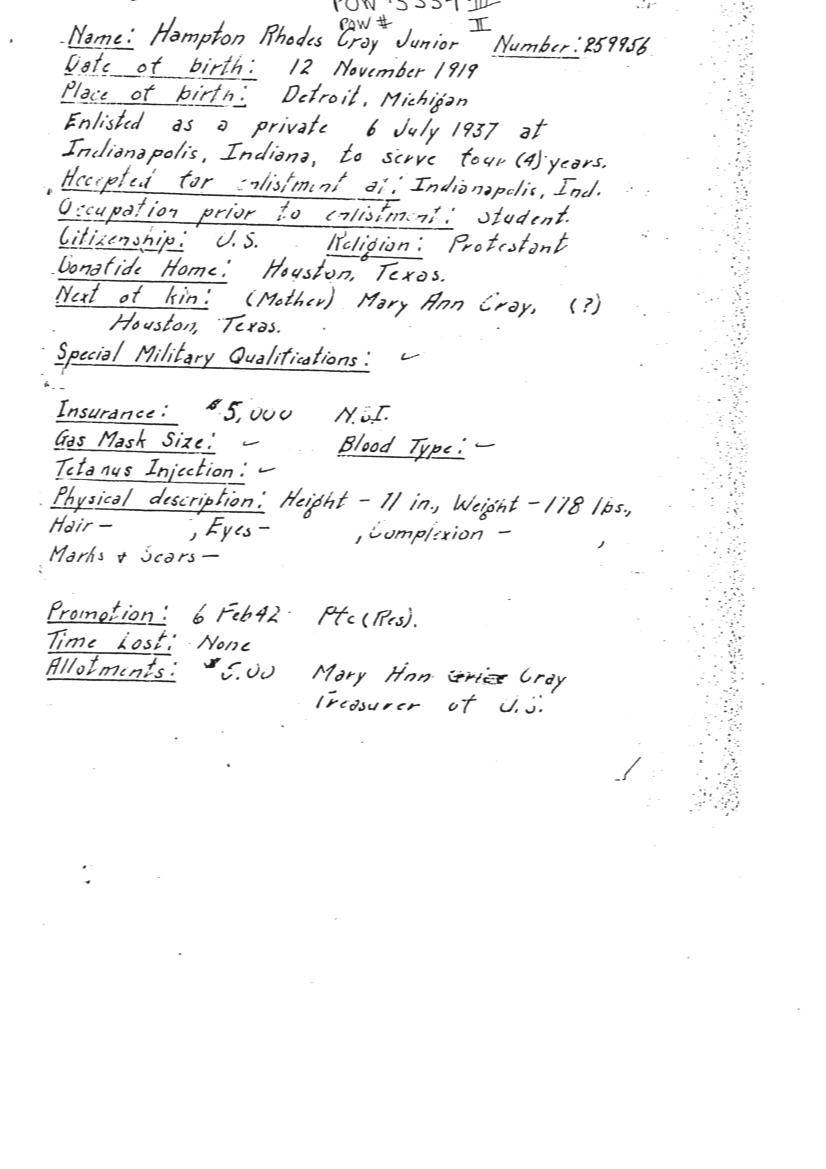 POW #
II
Name: Hampton Rhodes Gray Junior Number: 259956
Date of birth: 12 November 1919
Place of birth: Detroit, Michigan
Enlisted as a private 6 July 1937 at
Indianapolis, Indiana, to serve four (4) years.
Accepted for enlistment at: Indianapolis, Ind.
Occupation prior to enlistment: Student.
Citizenship: U.S. Religion: Protestant
Bonafide Home: Houston, Texas.
Next of kin: (Mother) Mary Ann Gray, (?)
Houston, Texas.
Special Military Qualifications: -
Insurance: $5,000 N.S.I.
Gas Mask Size: - Blood Type: -
Tetanus Injection: -
Physical description: Height - 71 in., Weight - 178 lbs.,
Hair - , Eyes - , Complexion - ,
Marks & Scars -
Promotion: 6 Feb 42 Pfc (Res).
Time Lost: None
Allotments: Mary Ann Gray
Treasurer of U.S.